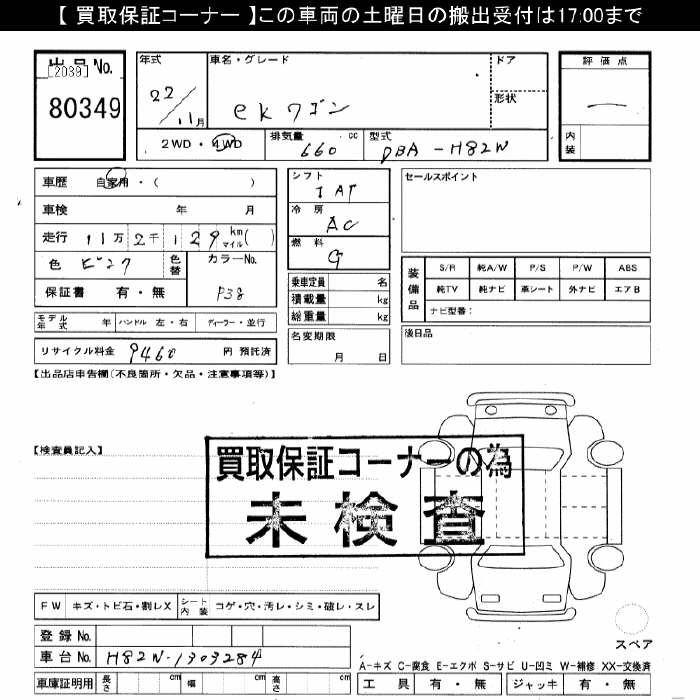 【 買取保証コーナー 】この車両の土曜日の搬出受付は17:00まで
出品No.
[2039]
80349
年式
22/11月
車名・グレード
ekワゴン
ドア
形状
評価点
内装
2WD・4WD
排気量
660 cc
型式
DBA-H82W
車歴 自家用・( )
車検 年 月
走行 11万2千129km マイル( )
色 ピンク
色替
カラーNo.
P38
保証書 有・無
シフト
IAT
冷房
AC
燃料
G
乗車定員 名
積載量 kg
総重量 kg
セールスポイント
装備品
S/R 純A/W P/S P/W ABS
純TV 純ナビ 革シート 外ナビ エアB
ナビ型番:
モデル年式 年 ハンドル 左・右 ディーラー・並行
名変期限
月 日
後日品
リサイクル料金 9460 円 預託済
【出品店申告欄(不良箇所・欠品・注意事項等)】
【検査員記入】
買取保証コーナーの為
未検査
FW キズ・トビ石・割レX シート内装 コゲ・穴・汚レ・シミ・破レ・スレ
スペア
登録No.
車台No. H82W-1303284
A-キズ C-腐食 E-エクボ S-サビ U-凹ミ W-補修 XX-交換済
車庫証明用 長さ cm 幅 cm 高さ cm
工具 有・無 ジャッキ 有・無